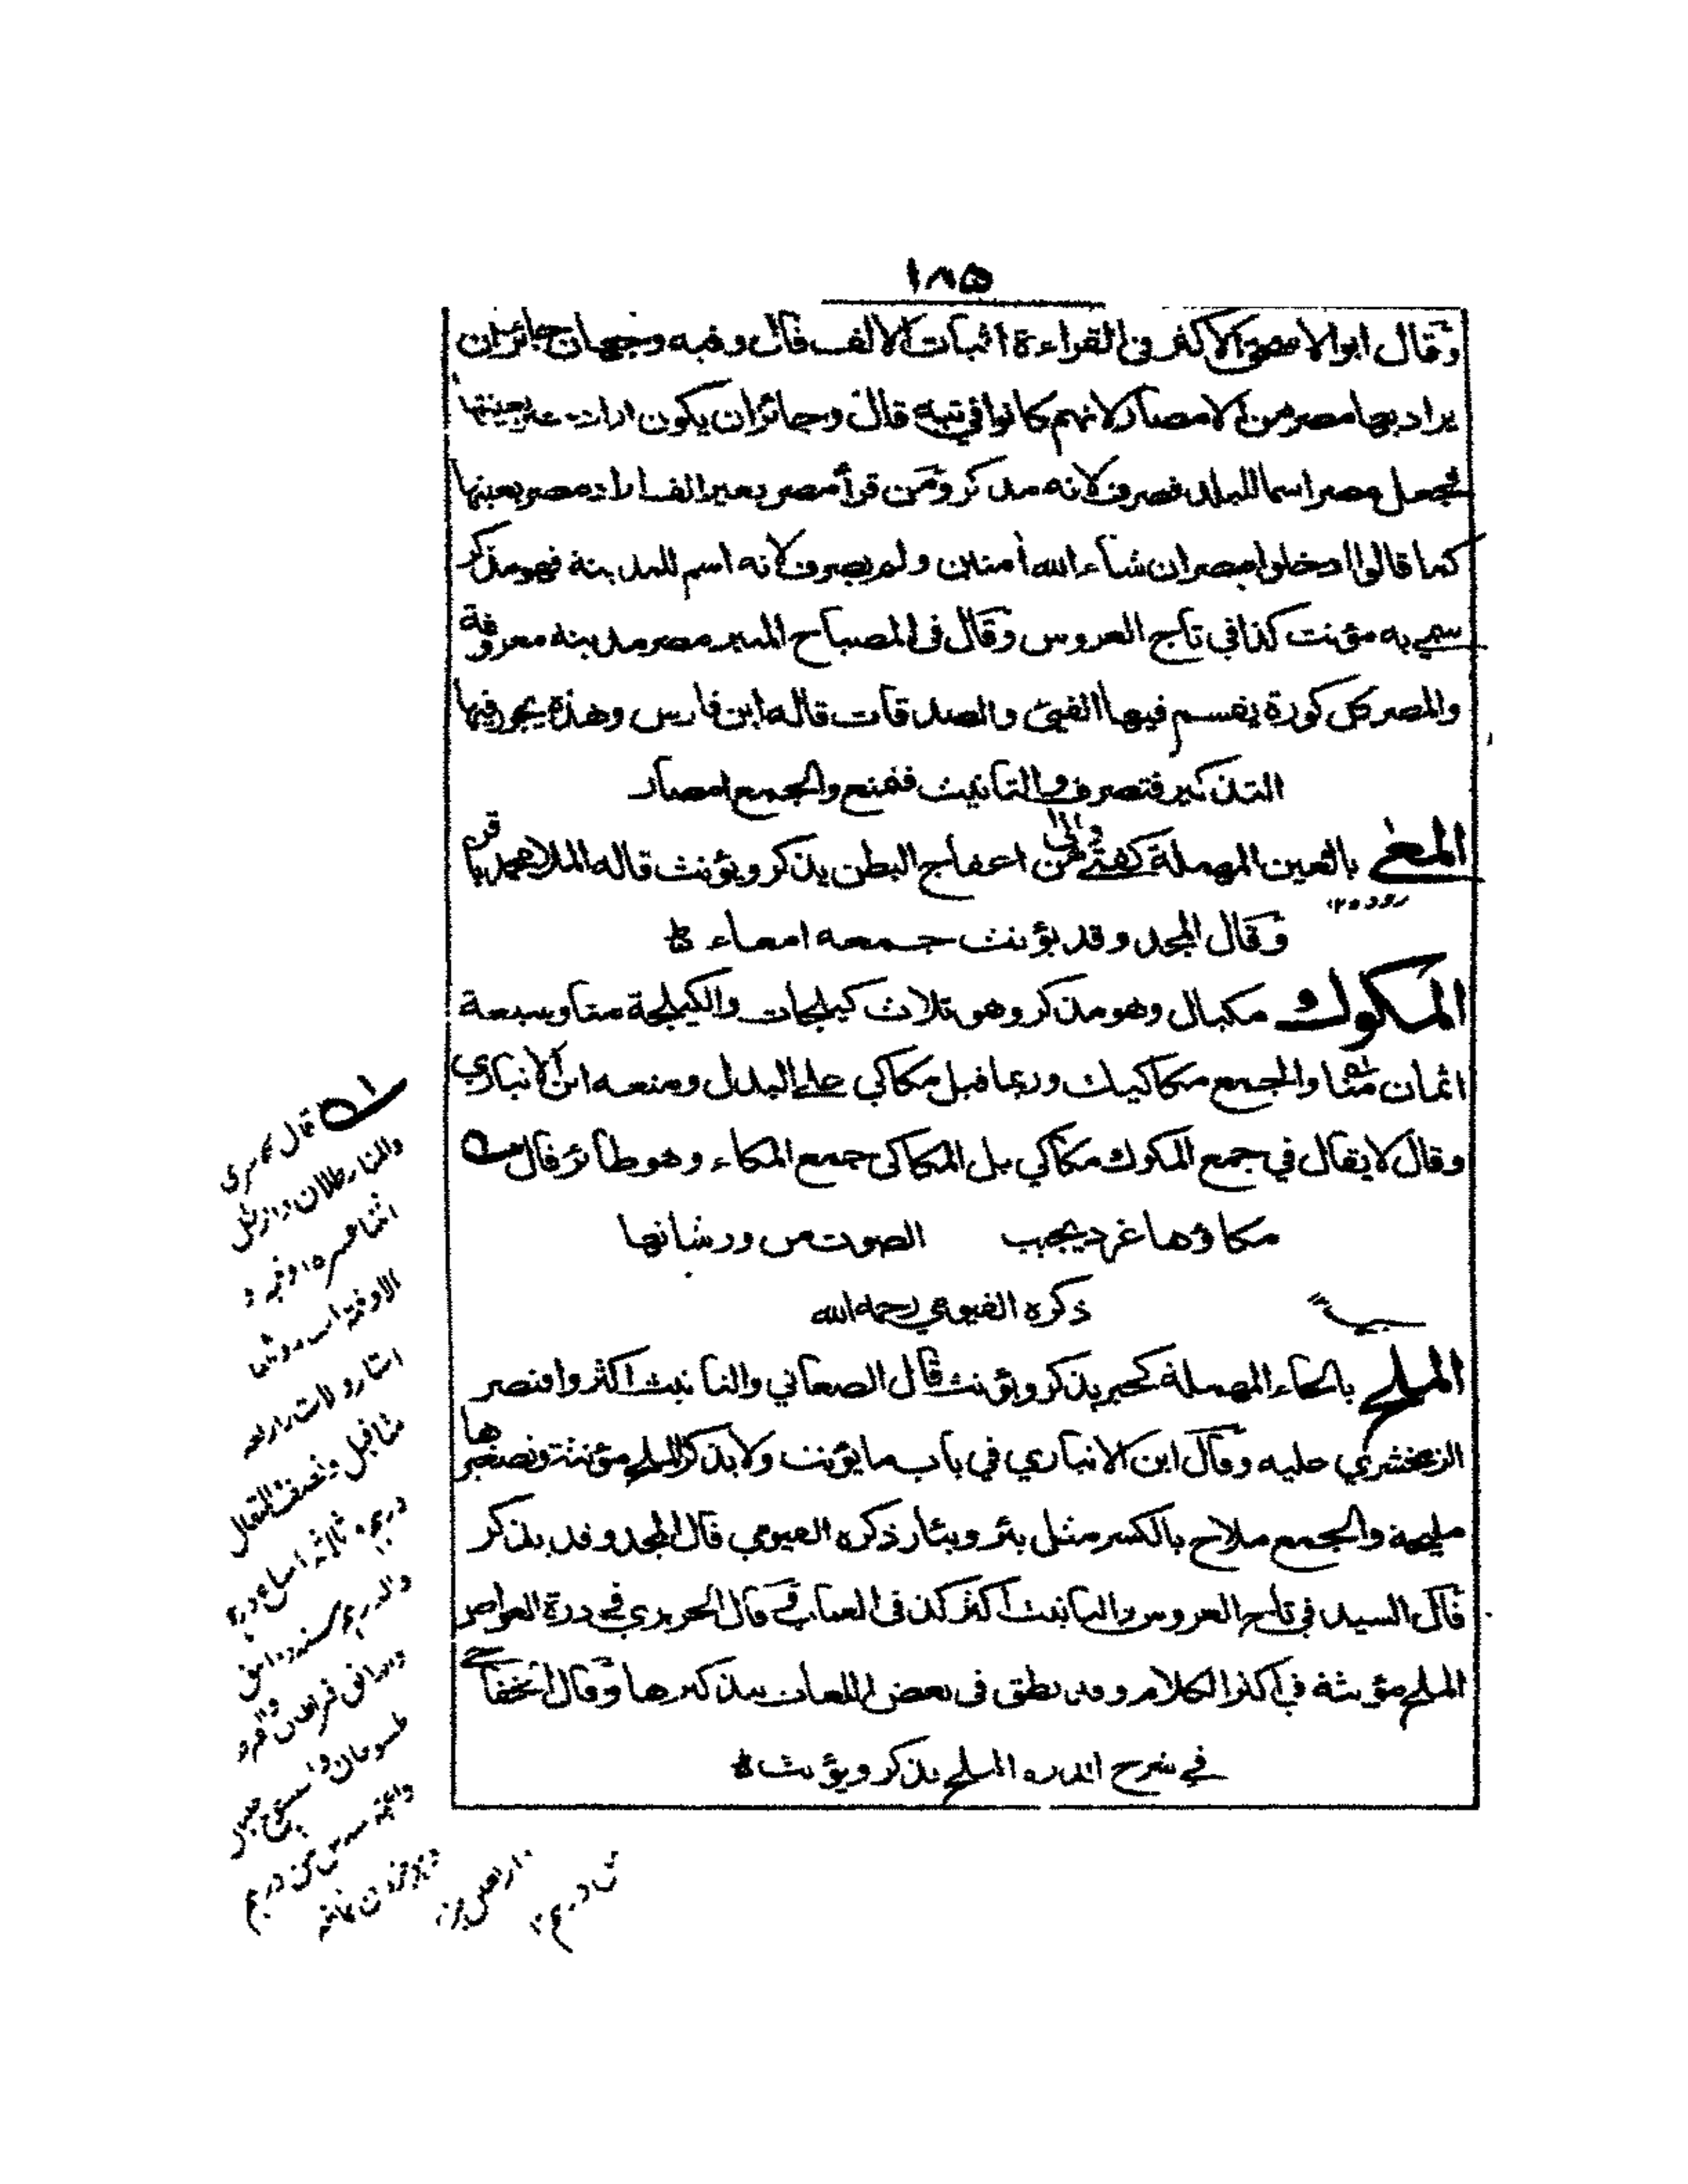 ١٨٥
وقال ابو الاسحق الاكثر فى القراءة اثبات الالف قال وفيه وجهان جائزان
يراد بها مصر من الامصار لانهم كانوا في تيه قال وجائز ان يكون اراد بعينها
فجعل مصر اسما للبلد فصرف لانه مذكر ومن قرأ مصر بغير الف اراد مصر بعينها
كما قال ادخلوا مصر ان شاء الله أمنين ولم يصرف لانه اسم للمدينة فهو مذكر
سمي به مؤنث كذا في تاج العروس وقال فى المصباح المنير مصر مدينة معروفة
والمصر كل كورة يقسم فيها الفيئ والصدقات قاله ابن فارس وهذه يجوز فيها
التذكير فتصرف والتانيث فتمنع والجمع امصار
المعى بالعين المهملة كفتى والى من اعفاج البطن يذكر ويؤنث قاله الملا محمد باقر
وقال المجد وقد يؤنث جمعه امعاء
المكوك مكيال وهو مذكر وهو ثلاث كيلجات والكيلجة منا وسبعة
اثمان منا والجمع مكاكيك وربما قيل مكاكي على البدل ومنعه ابن الانباري
وقال لا يقال في جمع المكوك مكاكي بل المكاكى جمع المكاء وهو طائر قال
مكاؤها غرد يجيب الصوت من ورشانها
ذكره الفيومي رحمه الله
الملح بالحاء المهملة كحبر يذكر ويؤنث قال الصغاني والتانيث اكثر واقتصر
الزمخشري عليه وقال ابن الانباري في باب ما يؤنث ولا يذكر الملح مؤنثة وتصغيرها
مليحة والجمع ملاح بالكسر مثل بئر وبئار ذكره الفيومي قال المجد وقد يذكر
قال السيد في تاج العروس والتانيث اكثر كذ فى العباب قال الحريري في درة الغواص
الملح مؤنثة في اكثر الكلام وقد نطق فى بعض اللغات بتذكيرها وقال الخفاجي
في شرح الدره الملح يذكر ويؤنث
قال
والمنا رطلان والرطل
اثنا عشره اوقية و
الاوقية استار وثلثا
استار
مثاقيل ونصف والمثقال
درهم وثلثة اسباع درهم
والدرهم ستة دوانق
والدانق قيراطان والقيراط
طسوجان